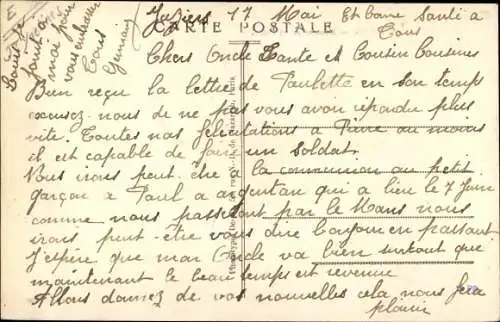 Juziers 17 Mai Et bonne Santé à
CARTE POSTALE
Tous
Chers Oncle Tante et Cousin Cousines
Bien reçu la lettre de Paulette en son temps
excusez nous de ne pas vous avoir répondu plus
vite. Toutes nos félicitations à Pierre au moins
il est capable de faire un soldat.
Nous irons peut être à la communion au petit
garçon à Paul à argentan qui a lieu le 7 Juin
comme nous passerons par le Mans nous
irons peut-être vous dire bonjour en passant
J'espère que mon Oncle va bien surtout que
maintenant le beau temps est revenue
Allons donnez de vos nouvelles cela nous fera
plaisir
pour
moi pour
vous embrasser
Tous
Germain